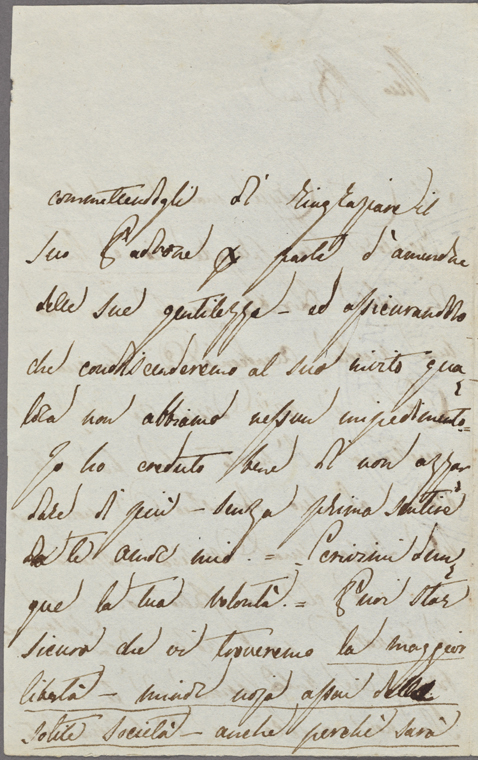 commettendogli di ringraziare il
suo Padrone per parte d'amendue
delle sue gentilezze – ed assicurandolo
che condiscenderemo al suo invito qua
lora non abbiamo nessun impedimento =
Io ho creduto bene di non azzar
dare di più – senza prima sentire
da te amor mio. = Scrivimi dun
que la tua volontà. = Puoi star
sicuro che vi troveremo la maggior
libertà – minor noja assai delle
solite società – anche perchè sarà